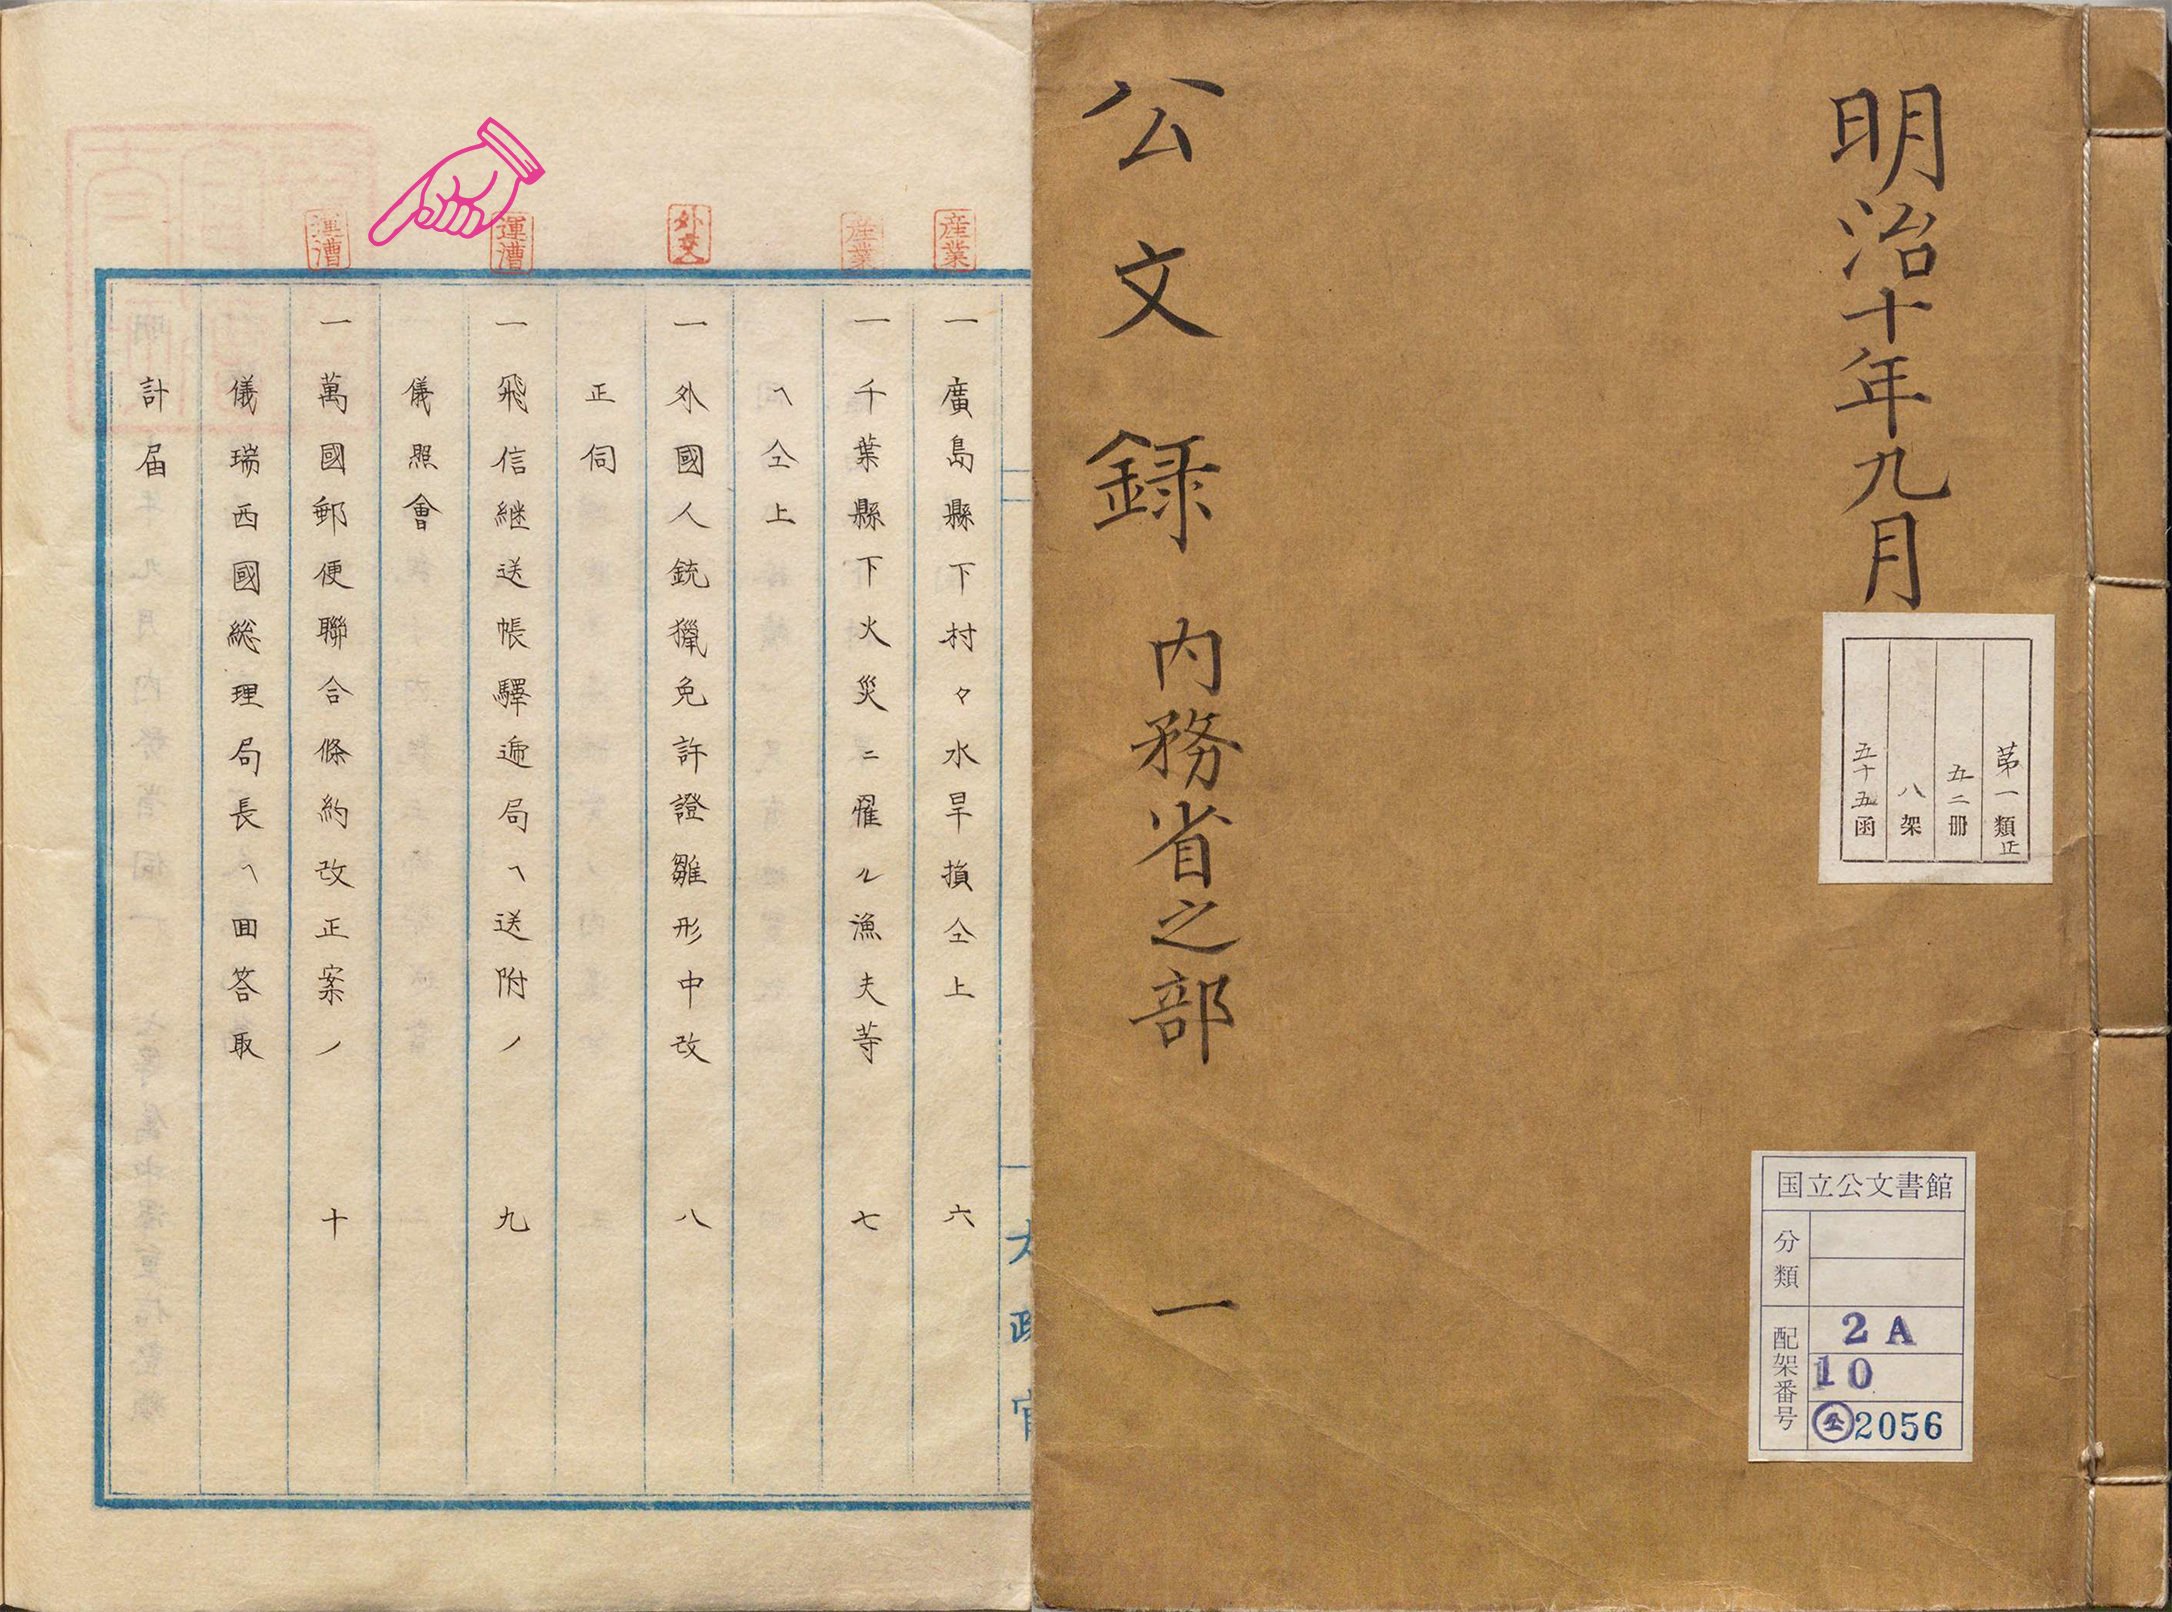 明治十年九月
公文録 内務省之部 一
第一類正
五二冊
八架
五十五函
国立公文書館
分類
配架番号
2A
10
公2056
産業
産業
外交
運漕
運漕
一廣島縣下村々水旱損仝上 六
一千葉縣下火災ニ罹ル漁夫等 七
ヘ仝上
一外國人銃獵免許證雛形中改 八
正伺
一飛信継送帳驛逓局ヘ送附ノ 九
儀照會
一萬國郵便聯合條約改正案ノ 十
儀瑞西國総理局長ヘ囬答取
計届